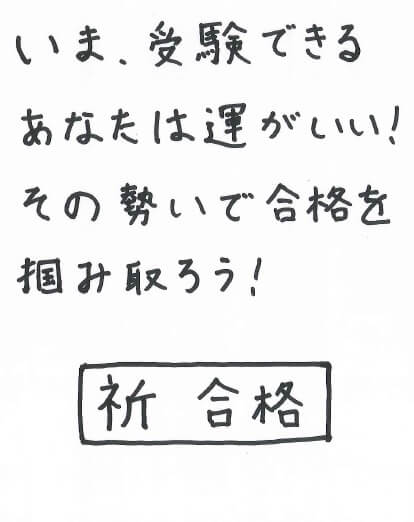 いま、受験できる
あなたは運がいい!
その勢いで合格を
掴み取ろう!
祈 合格